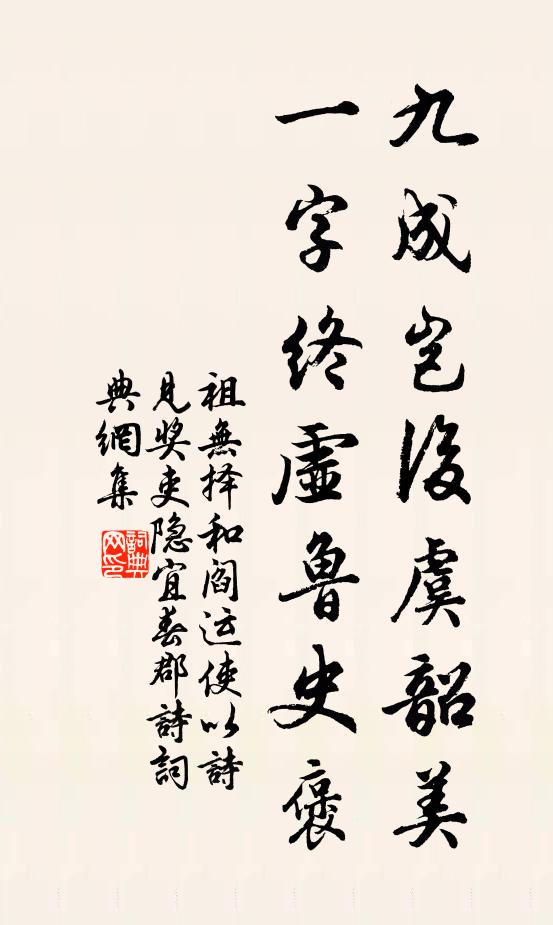 九成岂復虞韶美
一字终虚魯史褒
祖無择和阎运使以詩
见奖吏隐宜春郡詩詞
典網集
詞典
网印